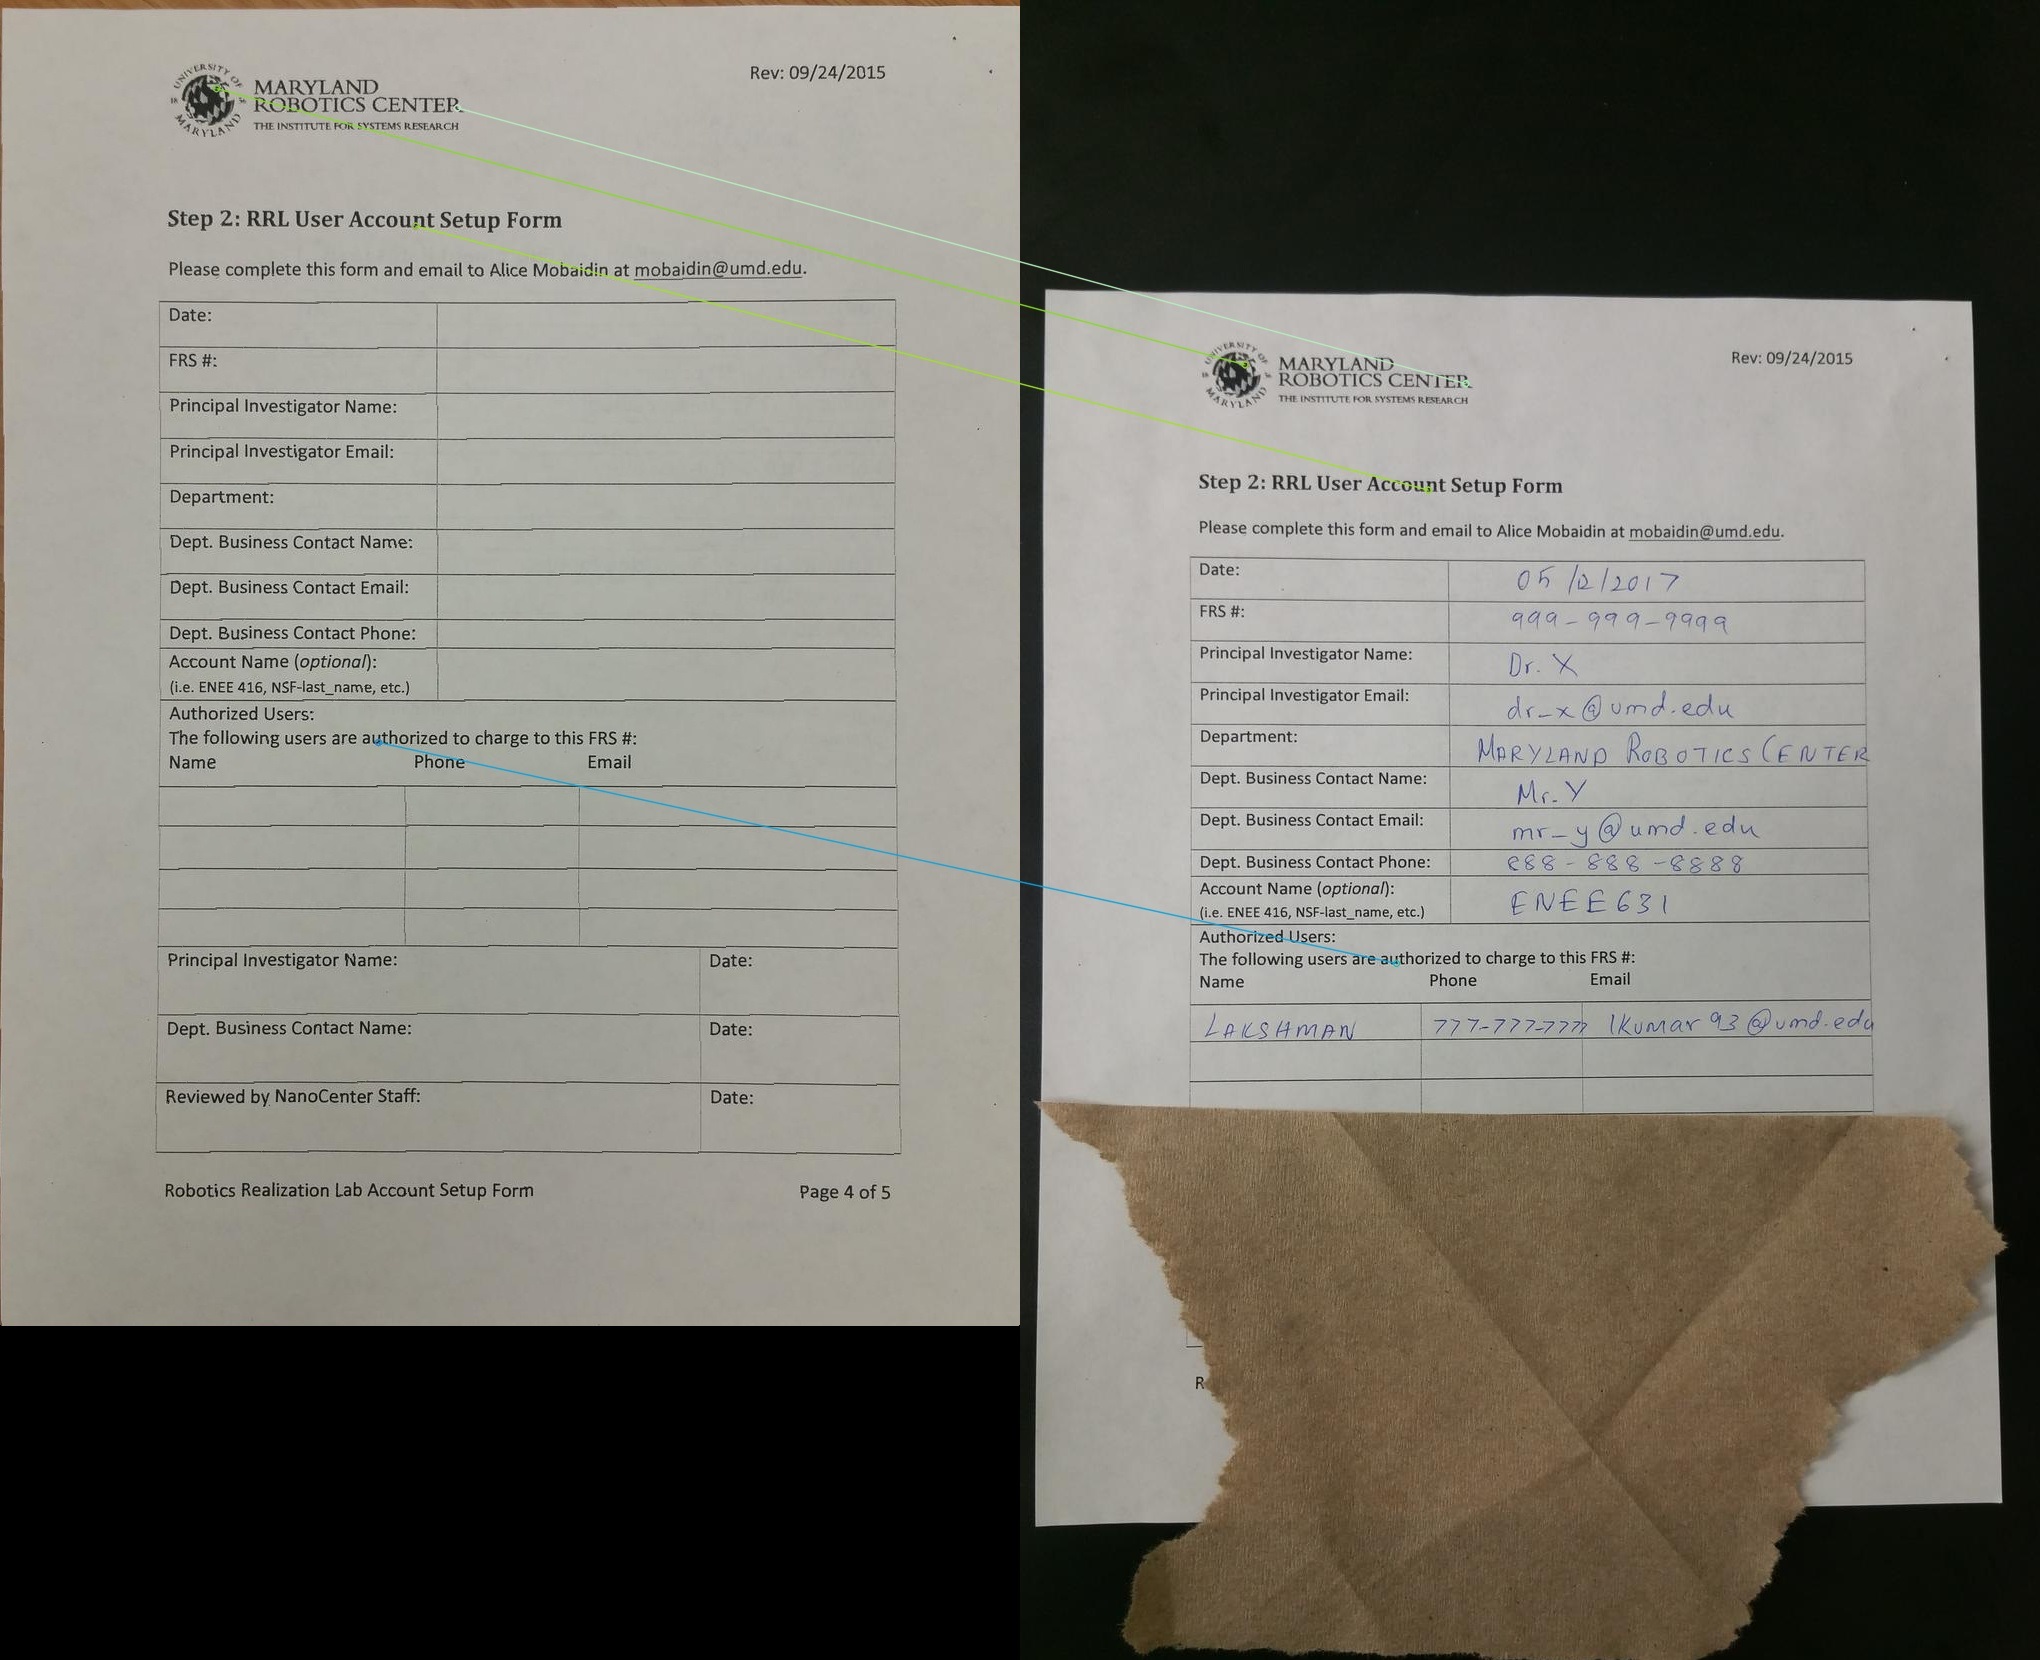 UNIVERSITY OF
18 56
MARYLAND
MARYLAND
ROBOTICS CENTER
THE INSTITUTE FOR SYSTEMS RESEARCH
Rev: 09/24/2015
Step 2: RRL User Account Setup Form
Please complete this form and email to Alice Mobaidin at mobaidin@umd.edu.
Date:
FRS #:
Principal Investigator Name:
Principal Investigator Email:
Department:
Dept. Business Contact Name:
Dept. Business Contact Email:
Dept. Business Contact Phone:
Account Name (optional):
(i.e. ENEE 416, NSF-last_name, etc.)
Authorized Users:
The following users are authorized to charge to this FRS #:
Name Phone Email
Principal Investigator Name: Date:
Dept. Business Contact Name: Date:
Reviewed by NanoCenter Staff: Date:
Robotics Realization Lab Account Setup Form Page 4 of 5
UNIVERSITY OF
18 56
MARYLAND
MARYLAND
ROBOTICS CENTER
THE INSTITUTE FOR SYSTEMS RESEARCH
Rev: 09/24/2015
Step 2: RRL User Account Setup Form
Please complete this form and email to Alice Mobaidin at mobaidin@umd.edu.
Date: 05/12/2017
FRS #: 999-999-9999
Principal Investigator Name: Dr. X
Principal Investigator Email: dr_x@umd.edu
Department: MARYLAND ROBOTICS CENTER
Dept. Business Contact Name: Mr. Y
Dept. Business Contact Email: mr_y@umd.edu
Dept. Business Contact Phone: 888-888-8888
Account Name (optional): ENEE631
(i.e. ENEE 416, NSF-last_name, etc.)
Authorized Users:
The following users are authorized to charge to this FRS #:
Name Phone Email
LAKSHMAN 777-777-7777 lkumar93@umd.edu
R